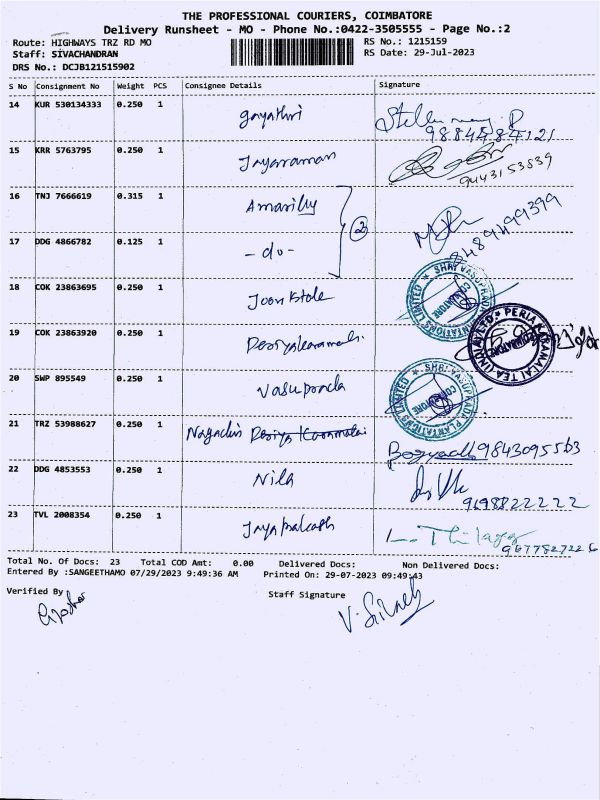 THE PROFESSIONAL COURIERS, COIMBATORE
Delivery Runsheet - MO - Phone No.:0422-3505555 - Page No.:2
Route: HIGHWAYS TRZ RD MO RS No.: 1215159
Staff: SIVACHANDRAN RS Date: 29-Jul-2023
DRS No.: DCJB121515902
S No Consignment No Weight PCS Consignee Details Signature
14 KUR 530134333 0.250 1 gayathri
9884484121
15 KRR 5763795 0.250 1 Jayaraman
9443153839
16 TNJ 7666619 0.315 1
2
17 DDG 4866782 0.125 1 -do- 8489499399
18 COK 23863695 0.250 1
SHRI VASUPRADA PLANTATIONS LIMITED
COIMBATORE
19 COK 23863920 0.250 1
PERIA KARAMALAI TEA
COIMBATORE
20 SWP 895549 0.250 1 Vasuprada
SHRI VASUPRADA PLANTATIONS LIMITED
COIMBATORE
21 TRZ 53988627 0.250 1 9843095563
22 DDG 4853553 0.250 1 Nila
9698822222
23 TVL 2008354 0.250 1 Jayaprakash
Total No. Of Docs: 23 Total COD Amt: 0.00 Delivered Docs: Non Delivered Docs:
Entered By :SANGEETHAMO 07/29/2023 9:49:36 AM Printed On: 29-07-2023 09:49:43
Verified By Staff Signature